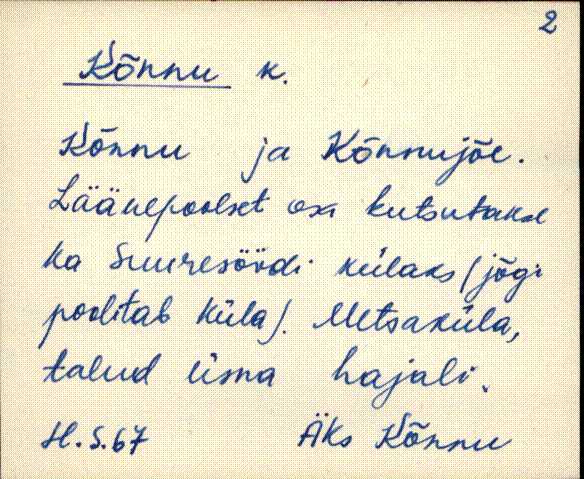 2
Kõnnu k.
Kõnnu ja Kõnnujõe.
Läänepoolset osa kutsutakse
ka Suuresöödi külaks (jõgi
poolitab küla). Metsaküla,
talud üsna hajali.
H.S.67 Äks Kõnnu